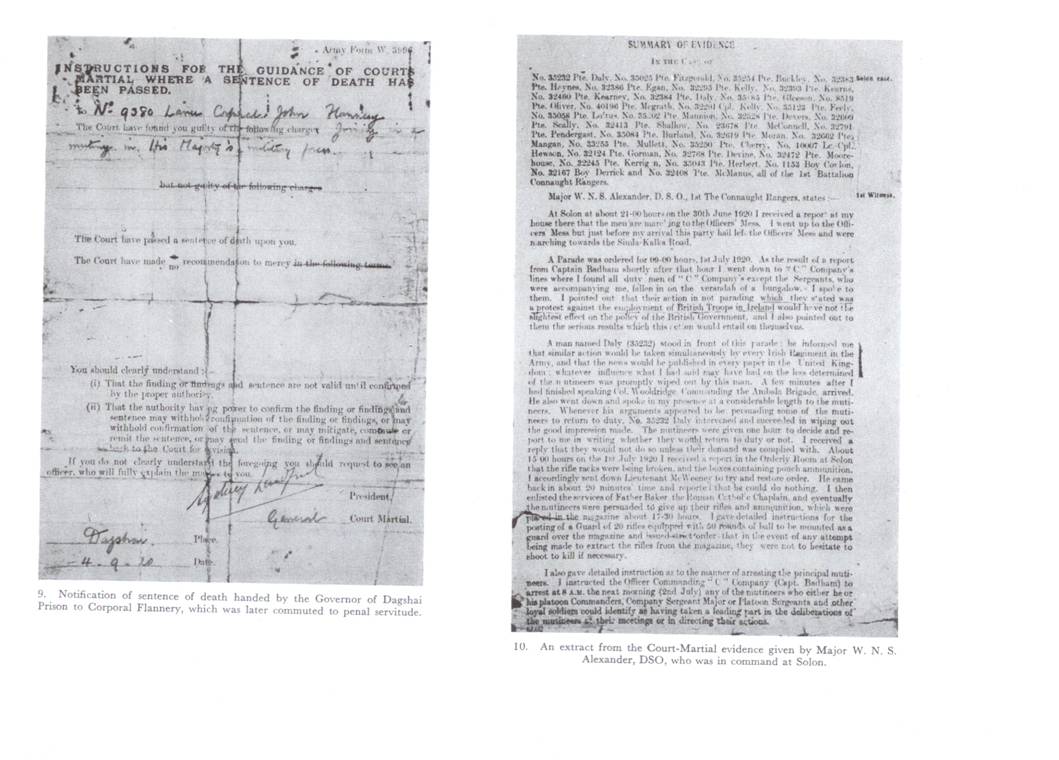 Army Form W. 3996.
INSTRUCTIONS FOR THE GUIDANCE OF COURTS
MARTIAL WHERE A SENTENCE OF DEATH HAS
BEEN PASSED.
to No 9380 Lance Corporal John Flannery
The Court have found you guilty of the following charges Joining in a
mutiny in His Majesty's military forces.
but not guilty of the following charges
The Court have passed a sentence of death upon you.
The Court have made no recommendation to mercy in the following terms
You should clearly understand :—
(i) That the finding or findings and sentence are not valid until confirmed
by the proper authority.
(ii) That the authority having power to confirm the finding or findings and
sentence may withhold confirmation of the finding or findings, or may
withhold confirmation of the sentence, or may mitigate, commute or
remit the sentence, or may send the finding or findings and sentence
back to the Court for revision.
If you do not clearly understand the foregoing you should request to see an
officer, who will fully explain the matter to you.
President,
General Court Martial.
Dagshai. Place.
4. 9. 20 Date.
9. Notification of sentence of death handed by the Governor of Dagshai
Prison to Corporal Flannery, which was later commuted to penal servitude.
SUMMARY OF EVIDENCE
IN THE CASE OF
No. 35232 Pte. Daly, No. 35025 Pte. Fitzgerald, No. 35254 Pte. Buckley, No. 32383 Solon case.
Pte. Heynes, No. 32386 Pte. Egan, No. 32295 Pte. Kelly, No. 32393 Pte. Kearns,
No. 32460 Pte. Kearney, No. 32384 Pte. Daly, Pte. Gleeson, No. 8519
Pte. Oliver, No. 40196 Pte. Mcgrath, No. 32291 Cpl. Kelly, No. 35123 Pte. Feely,
No. 35058 Pte. Loftus, Pte. Mannion, Pte. Devers,
Pte. Scally, No. 32413 Pte. Shallow, No. 23678 Pte. McConnell, No. 32791
Pte. Pendergast, No. 35084 Pte. Burland, No. 32619 Pte. Moran, No. 32602 Pte.
Mangan, No. 35255 Pte. Mullett, No. 35250 Pte. Cherry, No. 10067 Lc-Cpl.
Hewson, No. 32124 Pte. Gorman, No. 32768 Pte. Devine, No. 32472 Pte. Moore-
house, No. 32245 Pte. Kerrigan, No. 35043 Pte. Herbert, No. 1153 Boy Conlon,
No. 32167 Boy Derrick and No. 32408 Pte. McManus, all of the 1st Battalion
Connaught Rangers.
Major W. N. S. Alexander, D. S. O., 1st The Connaught Rangers, states :— 1st Witness.
At Solon at about 21-00 hours on the 30th June 1920 I received a report at my
house there that the men are marching to the Officers' Mess. I went up to the Offi-
cers Mess but just before my arrival this party had left the Officers' Mess and were
marching towards the Simla-Kalka Road.
A Parade was ordered for 09-00 hours, 1st July 1920. As the result of a report
from Captain Badham shortly after that hour I went down to "C" Company's
lines where I found all duty men of "C" Company's except the Sergeants, who
were accompanying me, fallen in on the verandah of a bungalow. I spoke to
them. I pointed out that their action in not parading which they stated was
a protest against the employment of British Troops in Ireland would have not the
slightest effect on the policy of the British Government, and I also pointed out to
them the serious results which this action would entail on themselves.
A man named Daly (35232) stood in front of this parade; he informed me
that similar action would be taken simultaneously by every Irish Regiment in the
Army, and that the news would be published in every paper in the United King-
dom; whatever influence what I had said may have had on the less determined
of the mutineers was promptly wiped out by this man. A few minutes after I
had finished speaking Col. Wooldridge, Commanding the Ambala Brigade, arrived.
He also went down and spoke in my presence at a considerable length to the muti-
neers. Whenever his arguments appeared to be persuading some of the muti-
neers to return to duty, No. 35232 Daly intervened and succeeded in wiping out
the good impression made. The mutineers were given one hour to decide and re-
port to me in writing whether they would return to duty or not. I received a
reply that they would not do so unless their demand was complied with. About
15-00 hours on the 1st July 1920 I received a report in the Orderly Room at Solon
that the rifle racks were being broken, and the boxes containing pouch ammunition.
I accordingly sent down Lieutenant McWeeney to try and restore order. He came
back in about 20 minutes' time and reported that he could do nothing. I then
enlisted the services of Father Baker, the Roman Catholic Chaplain, and eventually
the mutineers were persuaded to give up their rifles and ammunition, which were
placed in the magazine about 17-30 hours. I gave detailed instructions for the
posting of a Guard of 20 rifles equipped with 50 rounds of ball to be mounted as a
guard over the magazine and issued strict order that in the event of any attempt
being made to extract the rifles from the magazine, they were not to hesitate to
shoot to kill if necessary.
I also gave detailed instruction as to the manner of arresting the principal muti-
neers. I instructed the Officer Commanding "C" Company (Capt. Badham) to
arrest at 8 A.M. the next morning (2nd July) any of the mutineers who either he or
his platoon Commanders, Company Sergeant Major or Platoon Sergeants and other
loyal soldiers could identify as having taken a leading part in the deliberations of
the mutineers at their meetings or in directing their actions.
10. An extract from the Court-Martial evidence given by Major W. N. S.
Alexander, DSO, who was in command at Solon.